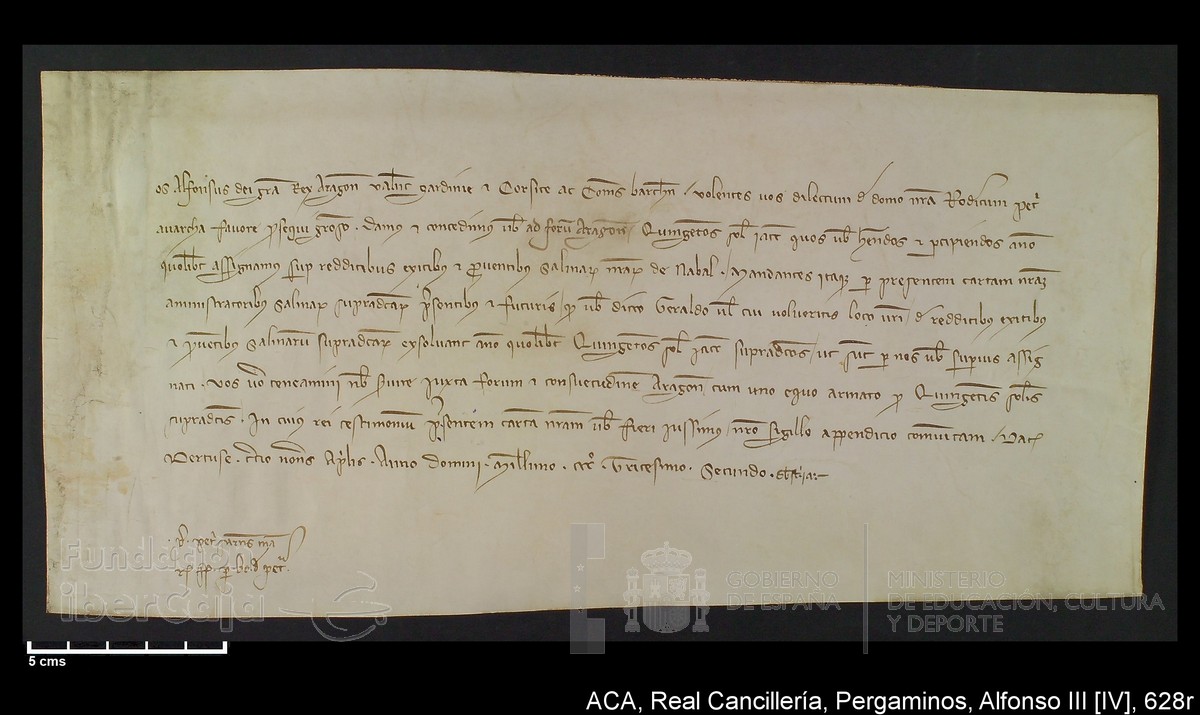 os Alfonsus dei gra Rex Aragon valenc Sardinie et Corsice ac Coms barchn. volentes vos dilectum d domo nra Rodicum petri
avarcha favore prosequi groso. Damus et concedimus vob ad foru Aragon Quingetos sol iacc quos vob hendos et pcipiendos ano
quolibt assignamus sup redditibus exitibus et proventibus Salinar nrar de Nabal. Mandantes itaqz per presentem cartam nram
aministratoribus Salinar supradcar psentibus et futuris qd vob dicto Geraldo vl cui volueritis loco vri d redditibus exitibus
et pventibus Salinarum supradcar exsolvant ano quolibt Quingetos sol iacc supradcos ut sunt per nos vob superius assig
nati. Vos vo teneamini nob svire iuxta forum et consuetudine Aragon cum uno equo armato p Quingetis solis
supradcis. In cuius rei testimonium psentem carta nram vob fieri iussimus nro sigillo appendicio comunitam. Dat
Dertuse. tercio nons Aplis. Anno domini. Millimo. CCC. Tricesimo. Secundo.
Fundación
iberCaja
GOBIERNO
DE ESPAÑA
MINISTERIO
DE EDUCACIÓN, CULTURA
Y DEPORTE
5 cms
ACA, Real Cancillería, Pergaminos, Alfonso III [IV], 628r